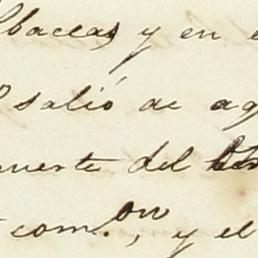 lbaceas y en e
salió de aq
uerte del
com.on, y el